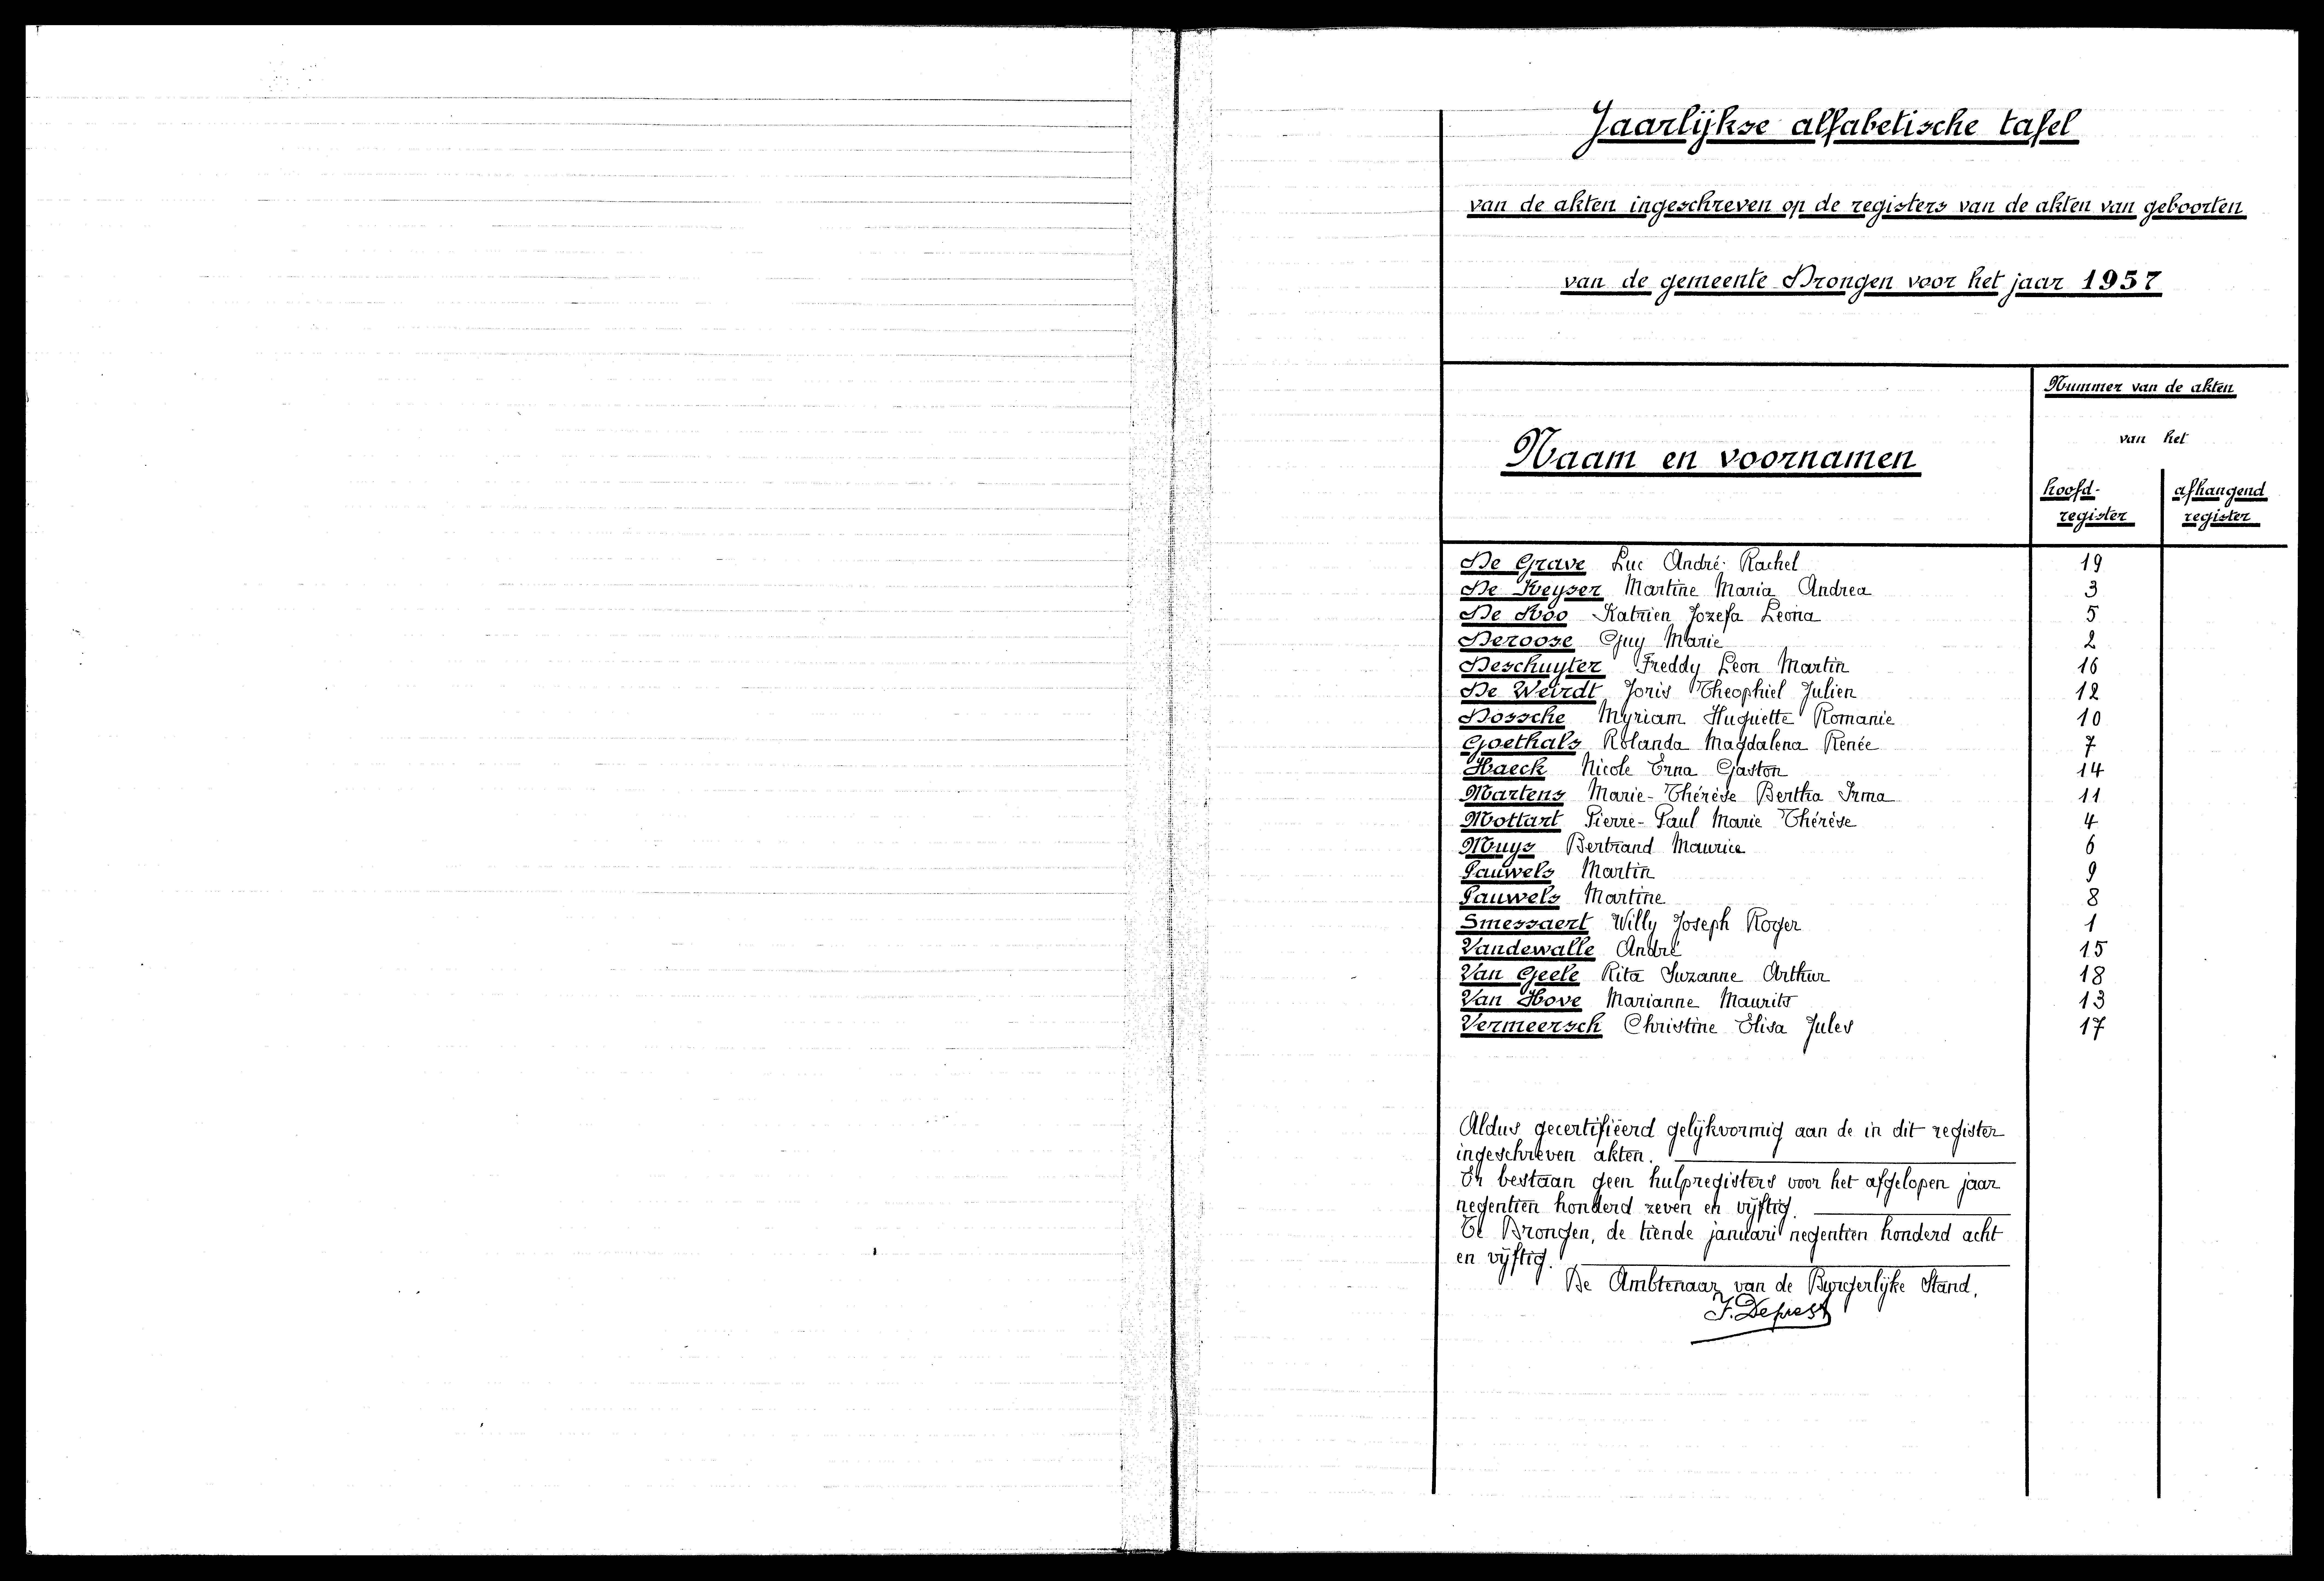 Jaarlijkse alfabetische tafel
van de akten ingeschreven op de registers van de akten van geboorten
van de gemeente Drongen voor het jaar 1957
Nummer van de akten
van het
Naam en voornamen
hoofd- afhangend
register register
De Grave Luc André Rachel 19
De Keyser Martine Maria Andrea 3
De Roo Katrien Jozefa Leona 5
Deroose Guy Marie 2
Deschuyter Freddy Leon Martin 16
De Weirdt Joris Theophiel Julien 12
Dossche Myriam Huguette Romanie 10
Goethals Rolanda Magdalena Renée 7
Haeck Nicole Erna Gaston 14
Martens Marie-Thérèse Bertha Irma 11
Mottart Pierre-Paul Marie Thérèse 4
Muys Bertrand Maurice 6
Pauwels Martin 9
Pauwels Martine 8
Smessaert Willy Joseph Roger 1
Vandewalle André 15
Van Geele Rita Suzanne Arthur 18
Van Hove Marianne Maurits 13
Vermeersch Christine Elisa Jules 17
Aldus gecertifiëerd gelijkvormig aan de in dit register
ingeschreven akten.
Er bestaan geen hulpregisters voor het afgelopen jaar
negentien honderd zeven en vijftig.
Te Drongen, de tiende januari negentien honderd acht
en vijftig.
De Ambtenaar van de Burgerlijke Stand,